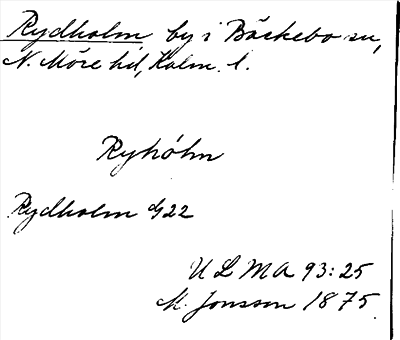 Rydholm by i Bäckebo sn,
N. Möre hd, Kalm. l.
Ryhólm
Rydholm d/22
ULMA 93:25
M. Jonsson 1875.